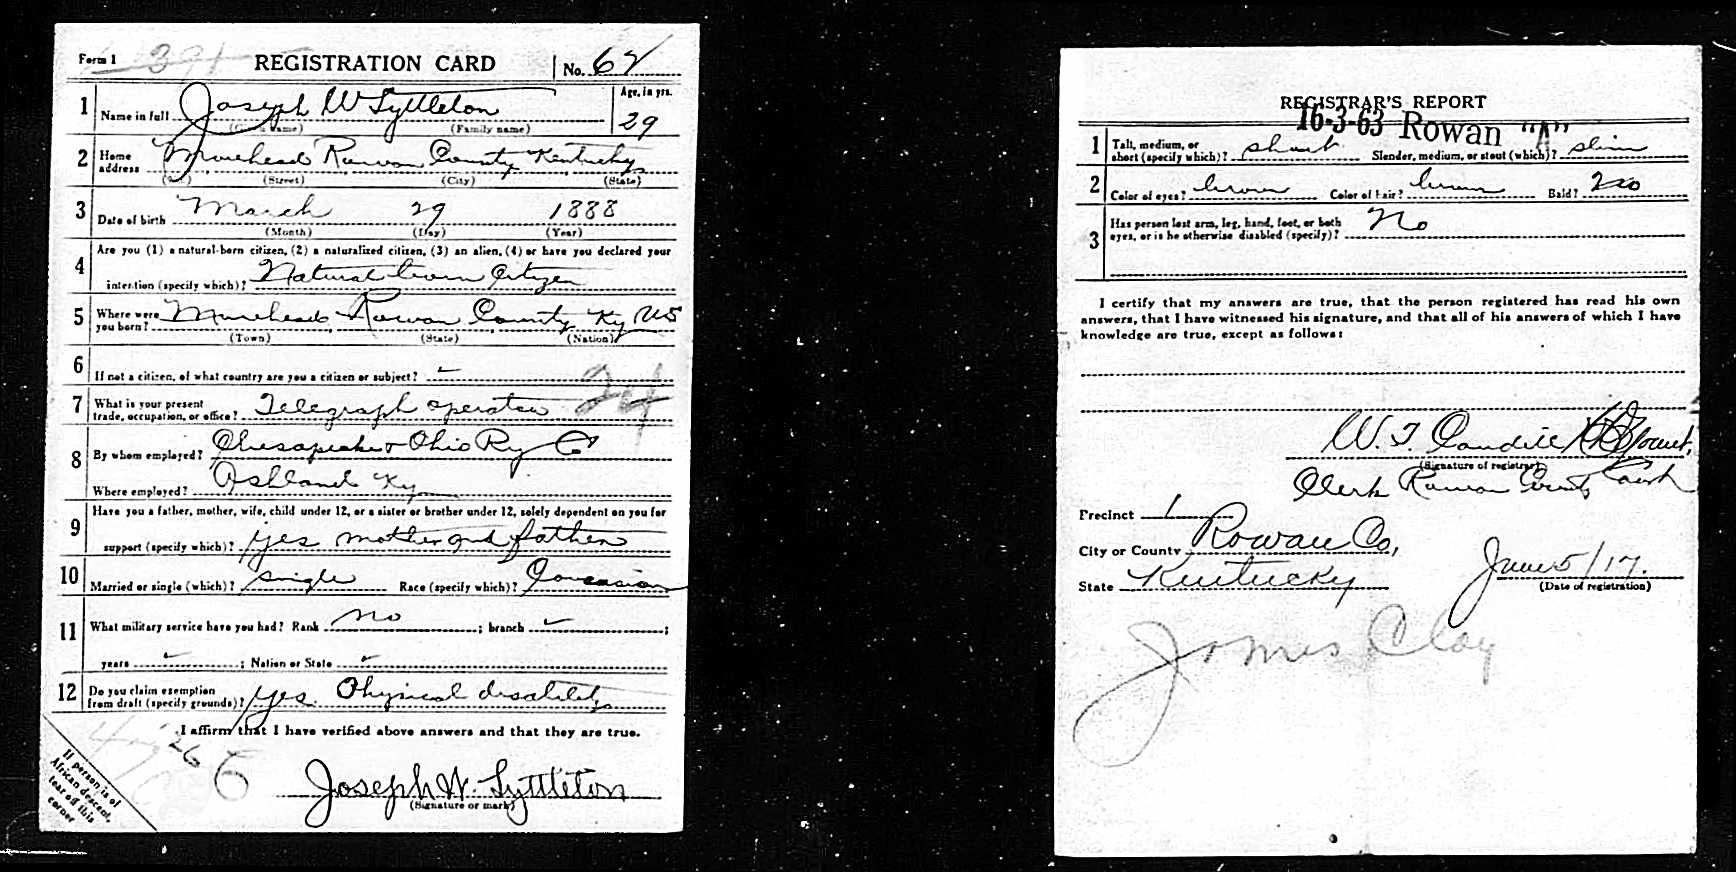 Form 1 391 REGISTRATION CARD No. 62
1 Name in full Joseph W Lyttleton Age, in yrs. 29
(Given name) (Family name)
2 Home address Morehead Rowan County Kentucky
(No.) (Street) (City) (State)
3 Date of birth March 29 1888
(Month) (Day) (Year)
4 Are you (1) a natural-born citizen, (2) a naturalized citizen, (3) an alien, (4) or have you declared your
intention (specify which)? Natural born Citizen
5 Where were you born? Morehead Rowan County Ky US
(Town) (State) (Nation)
6 If not a citizen, of what country are you a citizen or subject?
7 What is your present trade, occupation, or office? Telegraph operator 24
8 By whom employed? Chesapeake & Ohio Ry Co
Where employed? Ashland Ky
9 Have you a father, mother, wife, child under 12, or a sister or brother under 12, solely dependent on you for
support (specify which)? yes mother and father
10 Married or single (which)? single Race (specify which)? Caucasian
11 What military service have you had? Rank no ; branch ;
years ; Nation or State
12 Do you claim exemption from draft (specify grounds)? yes. Physical disability
I affirm that I have verified above answers and that they are true.
Joseph W. Lyttleton
(Signature or mark)
If person is of
African descent,
tear off this
corner
REGISTRAR'S REPORT
16-3-63 Rowan "A"
1 Tall, medium, or short (specify which)? short Slender, medium, or stout (which)? slim
2 Color of eyes? brown Color of hair? brown Bald? no
3 Has person lost arm, leg, hand, foot, or both
eyes, or is he otherwise disabled (specify)? No
I certify that my answers are true, that the person registered has read his own
answers, that I have witnessed his signature, and that all of his answers of which I have
knowledge are true, except as follows:
W. T. Caudill
(Signature of registrar)
Clerk Rowan County Court
Precinct 1
City or County Rowan Co,
State Kentucky June 5/17.
(Date of registration)
James Clay